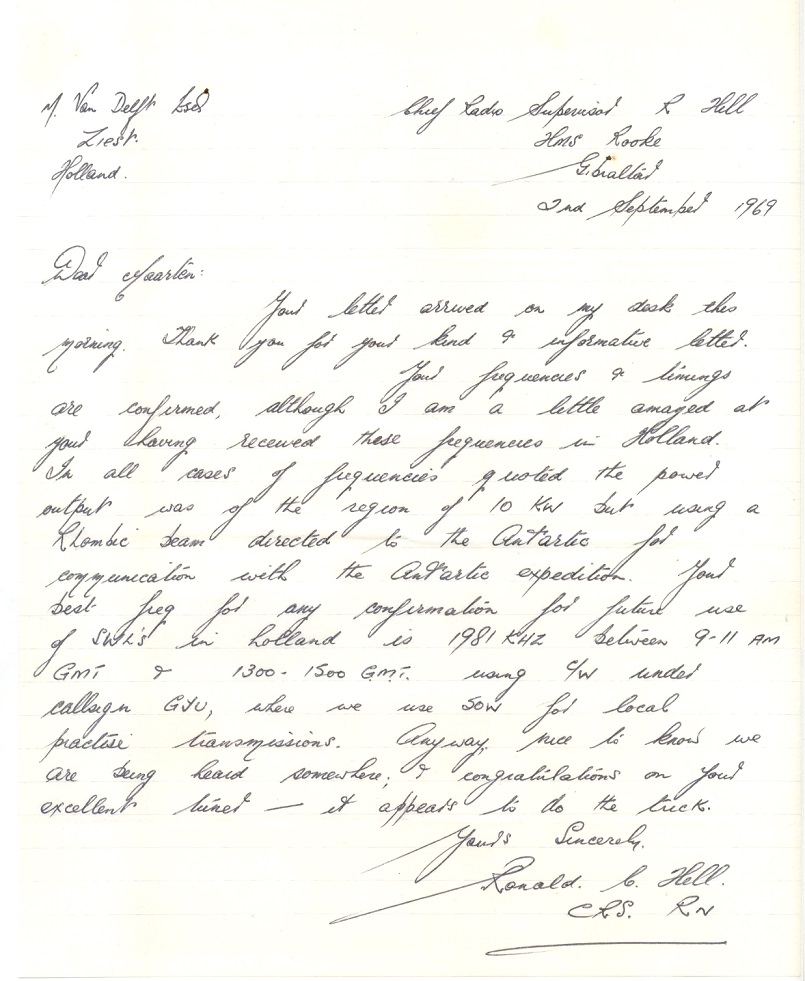 M. Van Delft Esq
Ziest.
Holland.
Chief Radio Supervisor R Hill
HMS Rooke
Gibraltar
2nd September 1969
Dear Maarten:
Your letter arrived on my desk this
morning. Thank you for your kind & informative letter.
Your frequencies & timings
are confirmed, although I am a little amazed at
your having received these frequencies in Holland.
In all cases of frequencies quoted the power
output was of the region of 10 KW but using a
Rhombic beam directed to the Antartic for
communication with the Antartic expedition. Your
best freq for any confirmation for future use
of SWL's in holland is 1981 KHZ between 9-11 AM
GMT & 1300-1500 G.M.T. using C/W under
callsign GYU, where we use 50W for local
practise transmissions. Anyway, nice to know we
are being heard somewhere; & congratulations on your
excellent tuner — it appears to do the trick.
Yours Sincerely.
Ronald. C. Hill.
CRS. RN